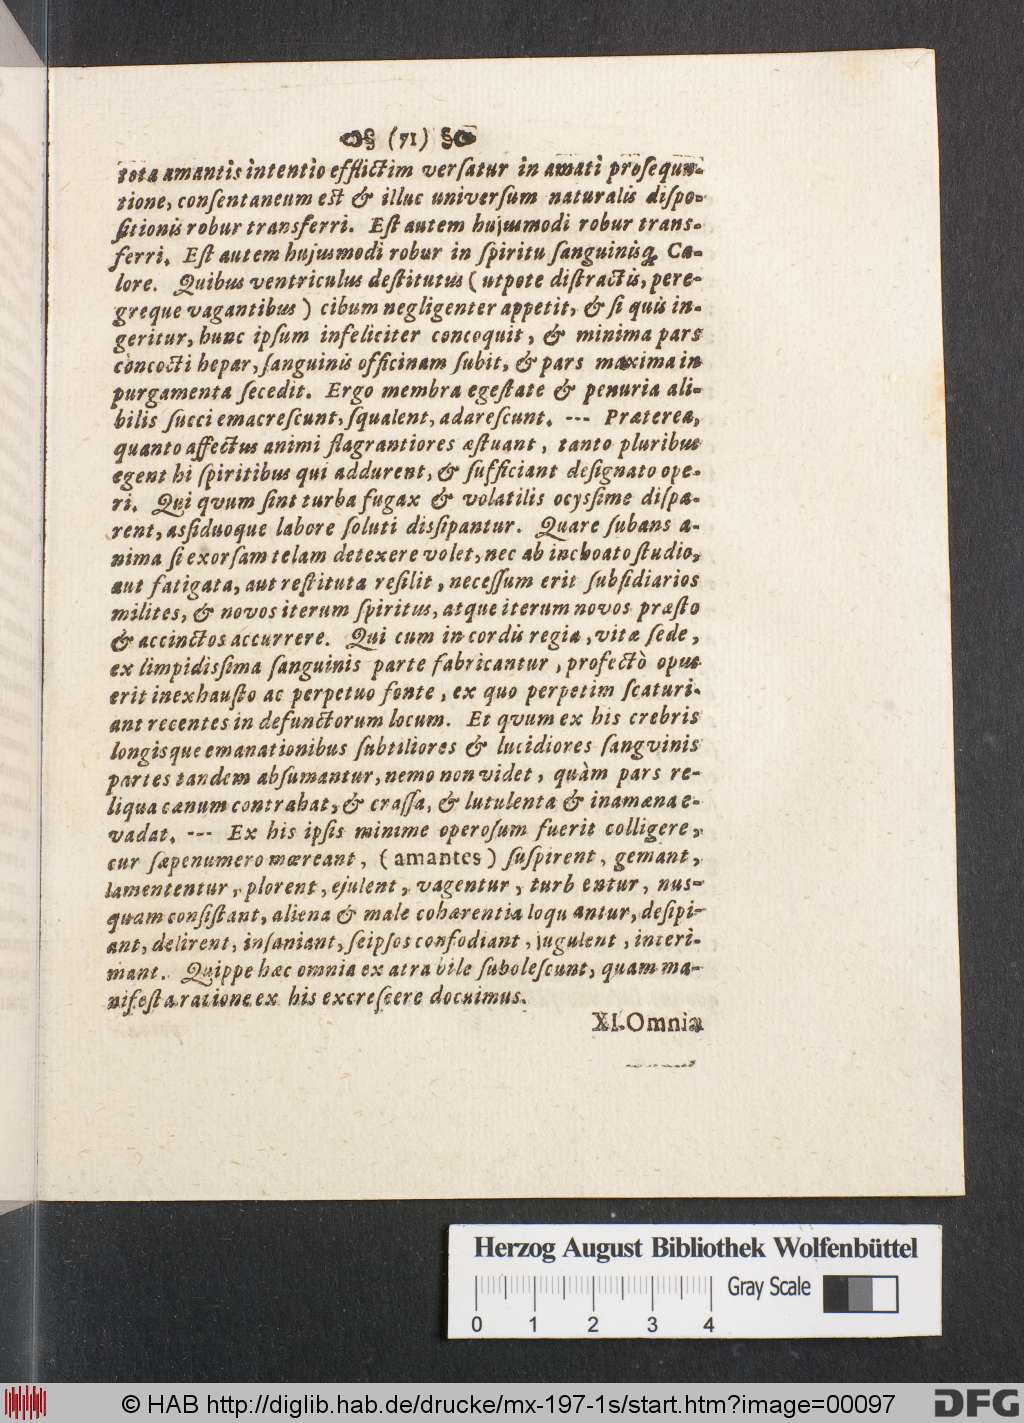 (71)
tota amantis intentio efflictim verſatur in amati proſequu-
tione, conſentaneum est & illuc univerſum naturalis diſpo-
ſitionis robur transferri. Eſt autem hujusmodi robur trans-
ferri. Eſt autem hujusmodi robur in ſpiritu ſanguinisq; Ca-
lore. Quibus ventriculus deſtitutus ( utpote diſtractis, pere-
greque vagantibus ) cibum negligenter appetit, & ſi quis in-
geritur, hunc ipſum infeliciter concoquit, & minima pars
concocti hepar, ſanguinis officinam ſubit, & pars maxima in
purgamenta ſecedit. Ergo membra egeſtate & penuria ali-
bilis ſucci emacreſcunt, ſqualent, adareſcunt. --- Præterea,
quanto affectus animi flagrantiores æſtuant, tanto pluribus
egent hi ſpiritibus qui addurent, & ſufficiant deſignato ope-
ri. Qui qvum ſint turba fugax & volatilis ocyſsime diſpa-
rent, aſsiduoque labore ſoluti diſsipantur. Quare ſubans a-
nima ſi exorſam telam detexere volet, nec ab inchoato ſtudio,
aut fatigata, aut reſtituta reſilit, neceſſum erit ſubſidiarios
milites, & novos iterum ſpiritus, atque iterum novos præſto
& accinctos accurrere. Qui cum in cordis regia, vitæ ſede,
ex limpidiſsima ſanguinis parte fabricantur, profectò opus
erit inexhauſto ac perpetuo fonte, ex quo perpetim ſcaturi-
ant recentes in defunctorum locum. Et qvum ex his crebris
longisque emanationibus ſubtiliores & lucidiores ſangvinis
partes tandem abſumantur, nemo non videt, quàm pars re-
liqua cænum contrahat, & craſſa, & lutulenta & inamæna e-
vadat. --- Ex his ipſis minime operoſum fuerit colligere,
cur ſæpenumero mœreant, ( amantes ) ſuſpirent, gemant,
lamententur, plorent, ejulent, vagentur, turb entur, nus-
quam conſiſtant, aliena & male cohærentia loqu antur, deſipi-
ant, delirent, inſaniant, ſeipſos confodiant, jugulent, interi-
mant. Quippe hæc omnia ex atra bile ſuboleſcunt, quam ma-
nifeſta ratione ex his excreſcere docuimus.
XI. Omnia
Herzog August Bibliothek Wolfenbüttel
Gray Scale
0 1 2 3 4
© HAB http://diglib.hab.de/drucke/mx-197-1s/start.htm?image=00097
DFG